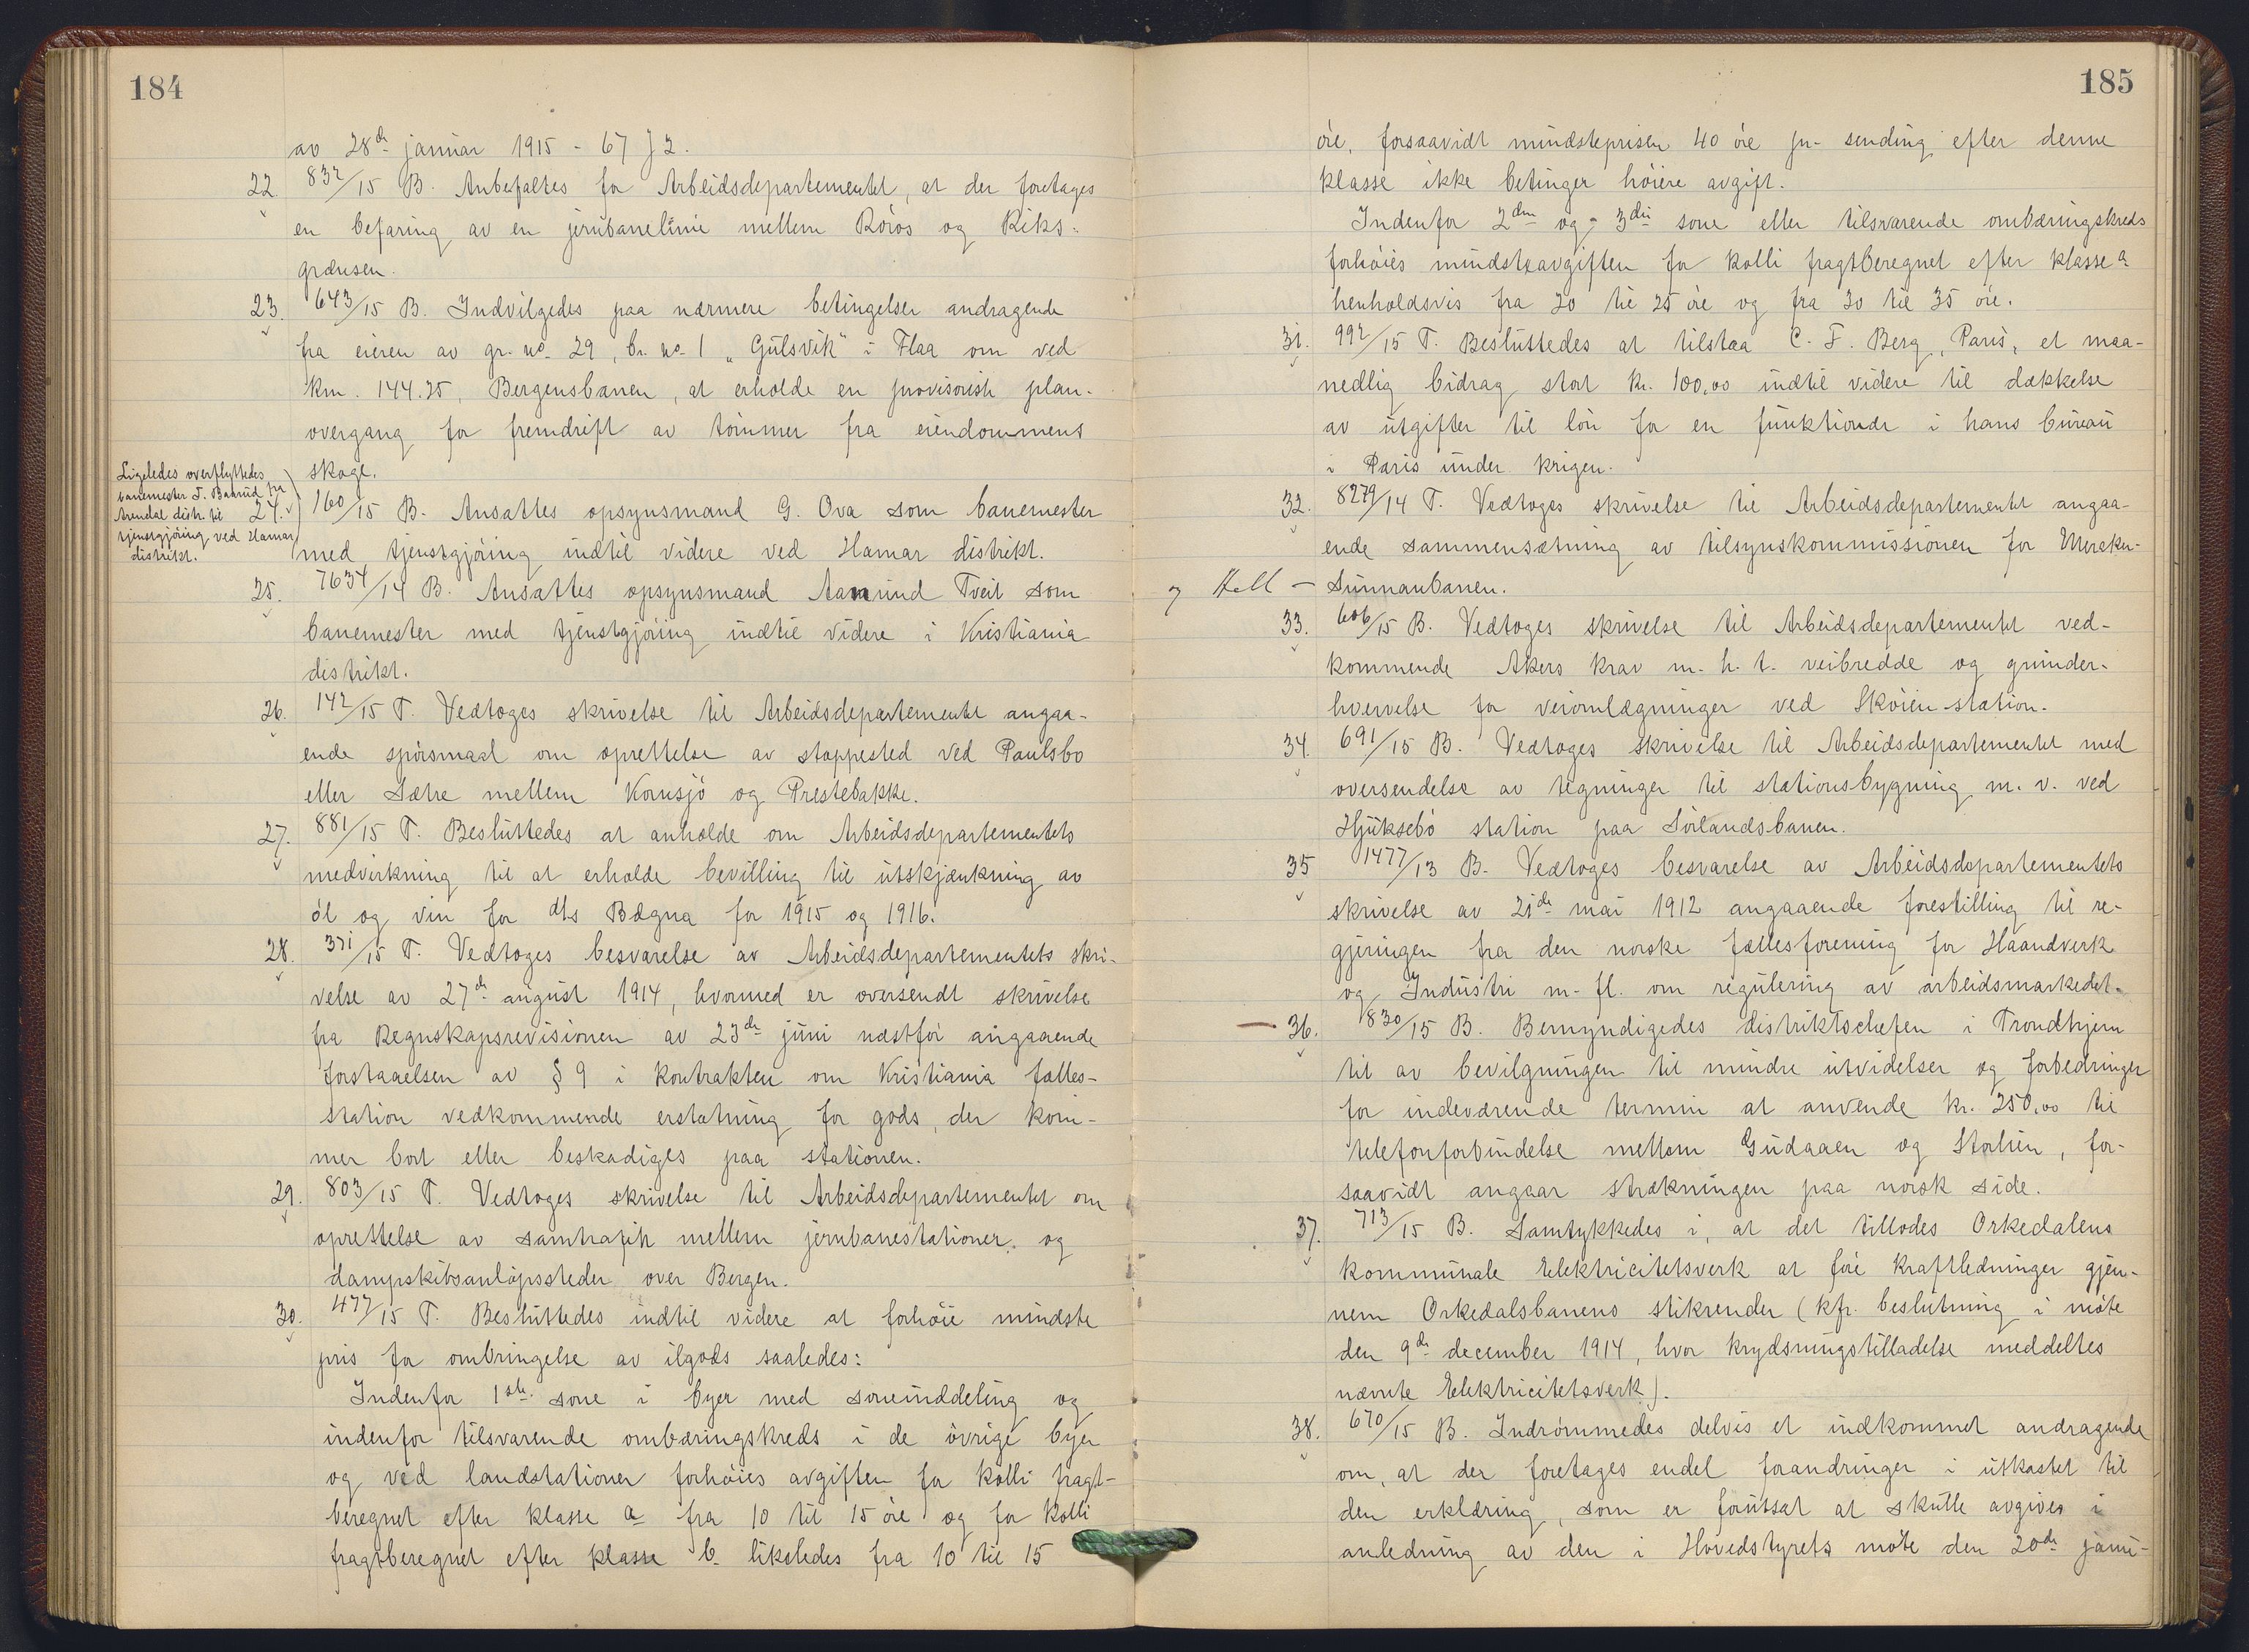 184
av 28de januar 1915 - 67 J 2.
22. 832/15 B. Anbefaltes for Arbeidsdepartementet, at der foretages
en befaring av en jernbanelinie mellem Röros og Riks-
grænsen.
23. 643/15 B. Indvilgedes paa nærmere betingelser andragende
fra eieren av gr. no. 29, br. no. 1 „Gulsvik" i Flaa om ved
km. 144.25, Bergensbanen, at erholde en provisorisk plan-
overgang for fremdrift av tömmer fra eiendommens
skoge.
Ligeledes overflyttedes
banemester T. Baarud fra
Arendal distr. til
tjenstgjöring ved Hamar
distrikt.
24. 160/15 B. Ansattes opsynsmand G. Ova som banemester
med tjenstgjöring indtil videre ved Hamar distrikt.
25. 7634/14 B. Ansattes opsynsmand Aamund Tveit som
banemester med tjenstgjöring indtil videre i Kristiania
distrikt.
26. 142/15 T. Vedtoges skrivelse til Arbeidsdepartementet angaa-
ende spörsmaal om oprettelse av stoppested ved Paulsbo
eller Sætre mellem Kornsjö og Prestebakke.
27. 881/15 T. Besluttedes at anholde om Arbeidsdepartementets
medvirkning til at erholde bevilling til utskjænkning av
öl og vin for d/s Bægna for 1915 og 1916.
28. 371/15 T. Vedtoges besvarelse av Arbeidsdepartementets skri-
velse av 27de august 1914, hvormed er oversendt skrivelse
fra Regnskapsrevisionen av 23de juni næstför angaaende
forstaaelsen av § 9 i kontrakten om Kristiania fælles-
station vedkommende erstatning for gods, der kom-
mer bort eller beskadiges paa stationen.
29. 803/15 T. Vedtoges skrivelse til Arbeidsdepartementet om
oprettelse av samtrafik mellem jernbanestationer og
dampskibsanlöpssteder over Bergen.
30. 477/15 T. Besluttedes indtil videre at forhöie mindste
pris for ombringelse av ilgods saaledes:
Indenfor 1ste sone i byer med soneinddeling og
indenfor tilsvarende ombæringskreds i de övrige byer
og ved landstationer forhöies avgiften for kolli fragt-
beregnet efter klasse a fra 10 til 15 öre og for kolli
fragtberegnet efter klasse b likeledes fra 10 til 15
185
öre, forsaavidt mindsteprisen 40 öre pr. sending efter denne
klasse ikke betinger höiere avgift.
Indenfor 2den og 3die sone eller tilsvarende ombæringskreds
forhöies mindsteavgiften for kolli fragtberegnet efter klasse a
henholdsvis fra 20 til 25 öre og fra 30 til 35 öre.
31. 992/15 T. Besluttedes at tilstaa C. F. Berg, Paris, et maa-
nedlig bidrag stort kr. 100,00 indtil videre til dækkelse
av utgifter til lön for en funktionær i hans bureau
i Paris under krigen.
32. 8279/14 T. Vedtoges skrivelse til Arbeidsdepartementet angaa-
ende sammensætning av tilsynskommissionen for Meraker-
og Hell - Sunnanbanen.
33. 606/15 B. Vedtoges skrivelse til Arbeidsdepartementet ved-
kommende Akers krav m. h. t. veibredde og grunder-
hvervelse for veiomlægninger ved Sköien station.
34. 691/15 B. Vedtoges skrivelse til Arbeidsdepartementet med
oversendelse av tegninger til stationsbygning m. v. ved
Hjuksebö station paa Sörlandsbanen.
35 1477/13 B. Vedtoges besvarelse av Arbeidsdepartementets
skrivelse av 21de mai 1912 angaaende forestilling til re-
gjeringen fra den norske fællesforening for Haandverk
og Industri m. fl. om regulering av arbeidsmarkedet.
36. 830/15 B. Bemyndigedes distriktschefen i Trondhjem
til av bevilgningen til mindre utvidelser og forbedringer
for indeværende termin at anvende kr. 250,00 til
telefonforbindelse mellem Gudaaen og Storlien, for-
saavidt angaar strækningen paa norsk side.
37. 713/15 B. Samtykkedes i, at det tillodes Orkedalens
kommunale Elektricitetsverk at före kraftledninger gjen-
nem Orkedalsbanens stikrender (kfr. beslutning i möte
den 9de december 1914, hvor krydsningstilladelse meddeltes
nævnte Elektricitetsverk).
38. 670/15 B. Indrömmedes delvis et indkommet andragende
om, at der foretages endel forandringer i utkastet til
den erklæring, som er forutsat at skulle avgives i
anledning av den i Hovedstyrets möte den 20de janu-